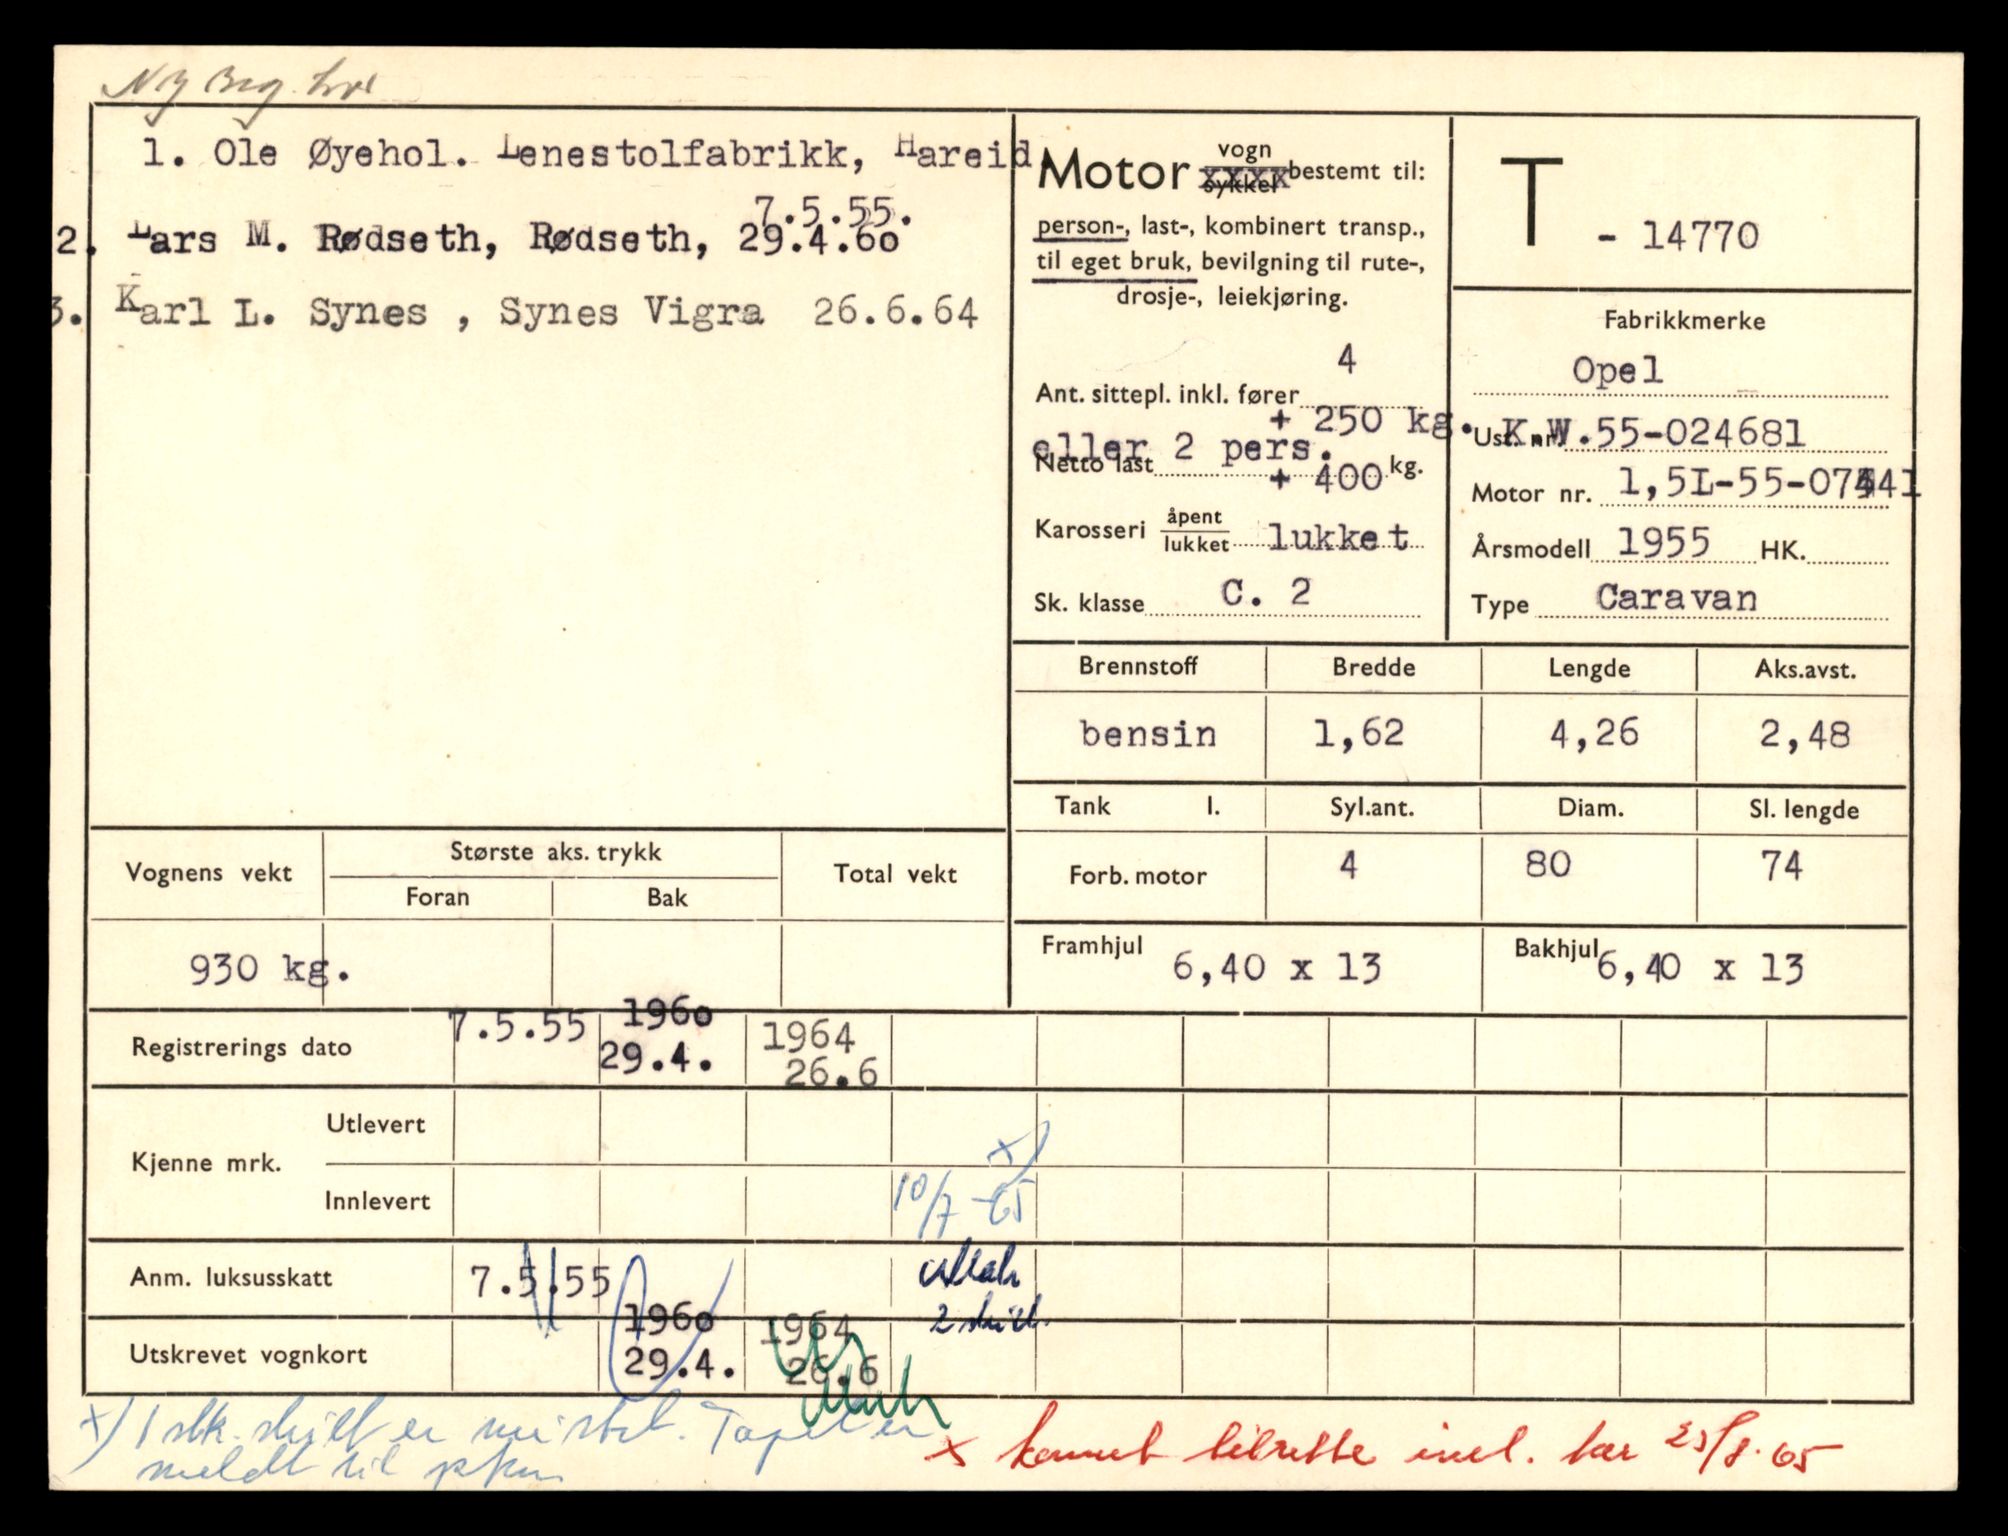 Ny
1. Ole Øyehol. Lenestolfabrikk, Hareid.
7.5.55.
2. Lars M. Rødseth, Rødseth, 29.4.60
3. Karl L. Synes , Synes Vigra 26.6.64
Motor vogn sykkel bestemt til:
person-, last-, kombinert transp.,
til eget bruk, bevilgning til rute-,
drosje-, leiekjøring.
4
Ant. sittepl. inkl. fører
+ 250 kg.
eller 2 pers.
Netto last + 400 kg.
Karosseri åpent lukket lukket
Sk. klasse C. 2
T - 14770
Fabrikkmerke
Opel
Ust. nr. K.W.55-024681
Motor nr. 1,5L-55-07441
Årsmodell 1955 HK.
Type Caravan
Brennstoff Bredde Lengde Aks.avst.
bensin 1,62 4,26 2,48
Tank l. Syl.ant. Diam. Sl. lengde
Forb. motor 4 80 74
Framhjul 6,40 x 13 Bakhjul 6,40 x 13
Vognens vekt Største aks. trykk Total vekt
Foran Bak
930 kg.
Registrerings dato 7.5.55 1960 29.4. 1964 26.6
Kjenne mrk.
Utlevert
x)
Innlevert 10/7 -65
Anm. luksusskatt 7.5.55
2 skilt.
Utskrevet vognkort 1960 29.4. 1964 26.6
x) 1 stk. skilt er mistet. Tapet er
meldt til
x kommet tilrette innl. her 23/8-65